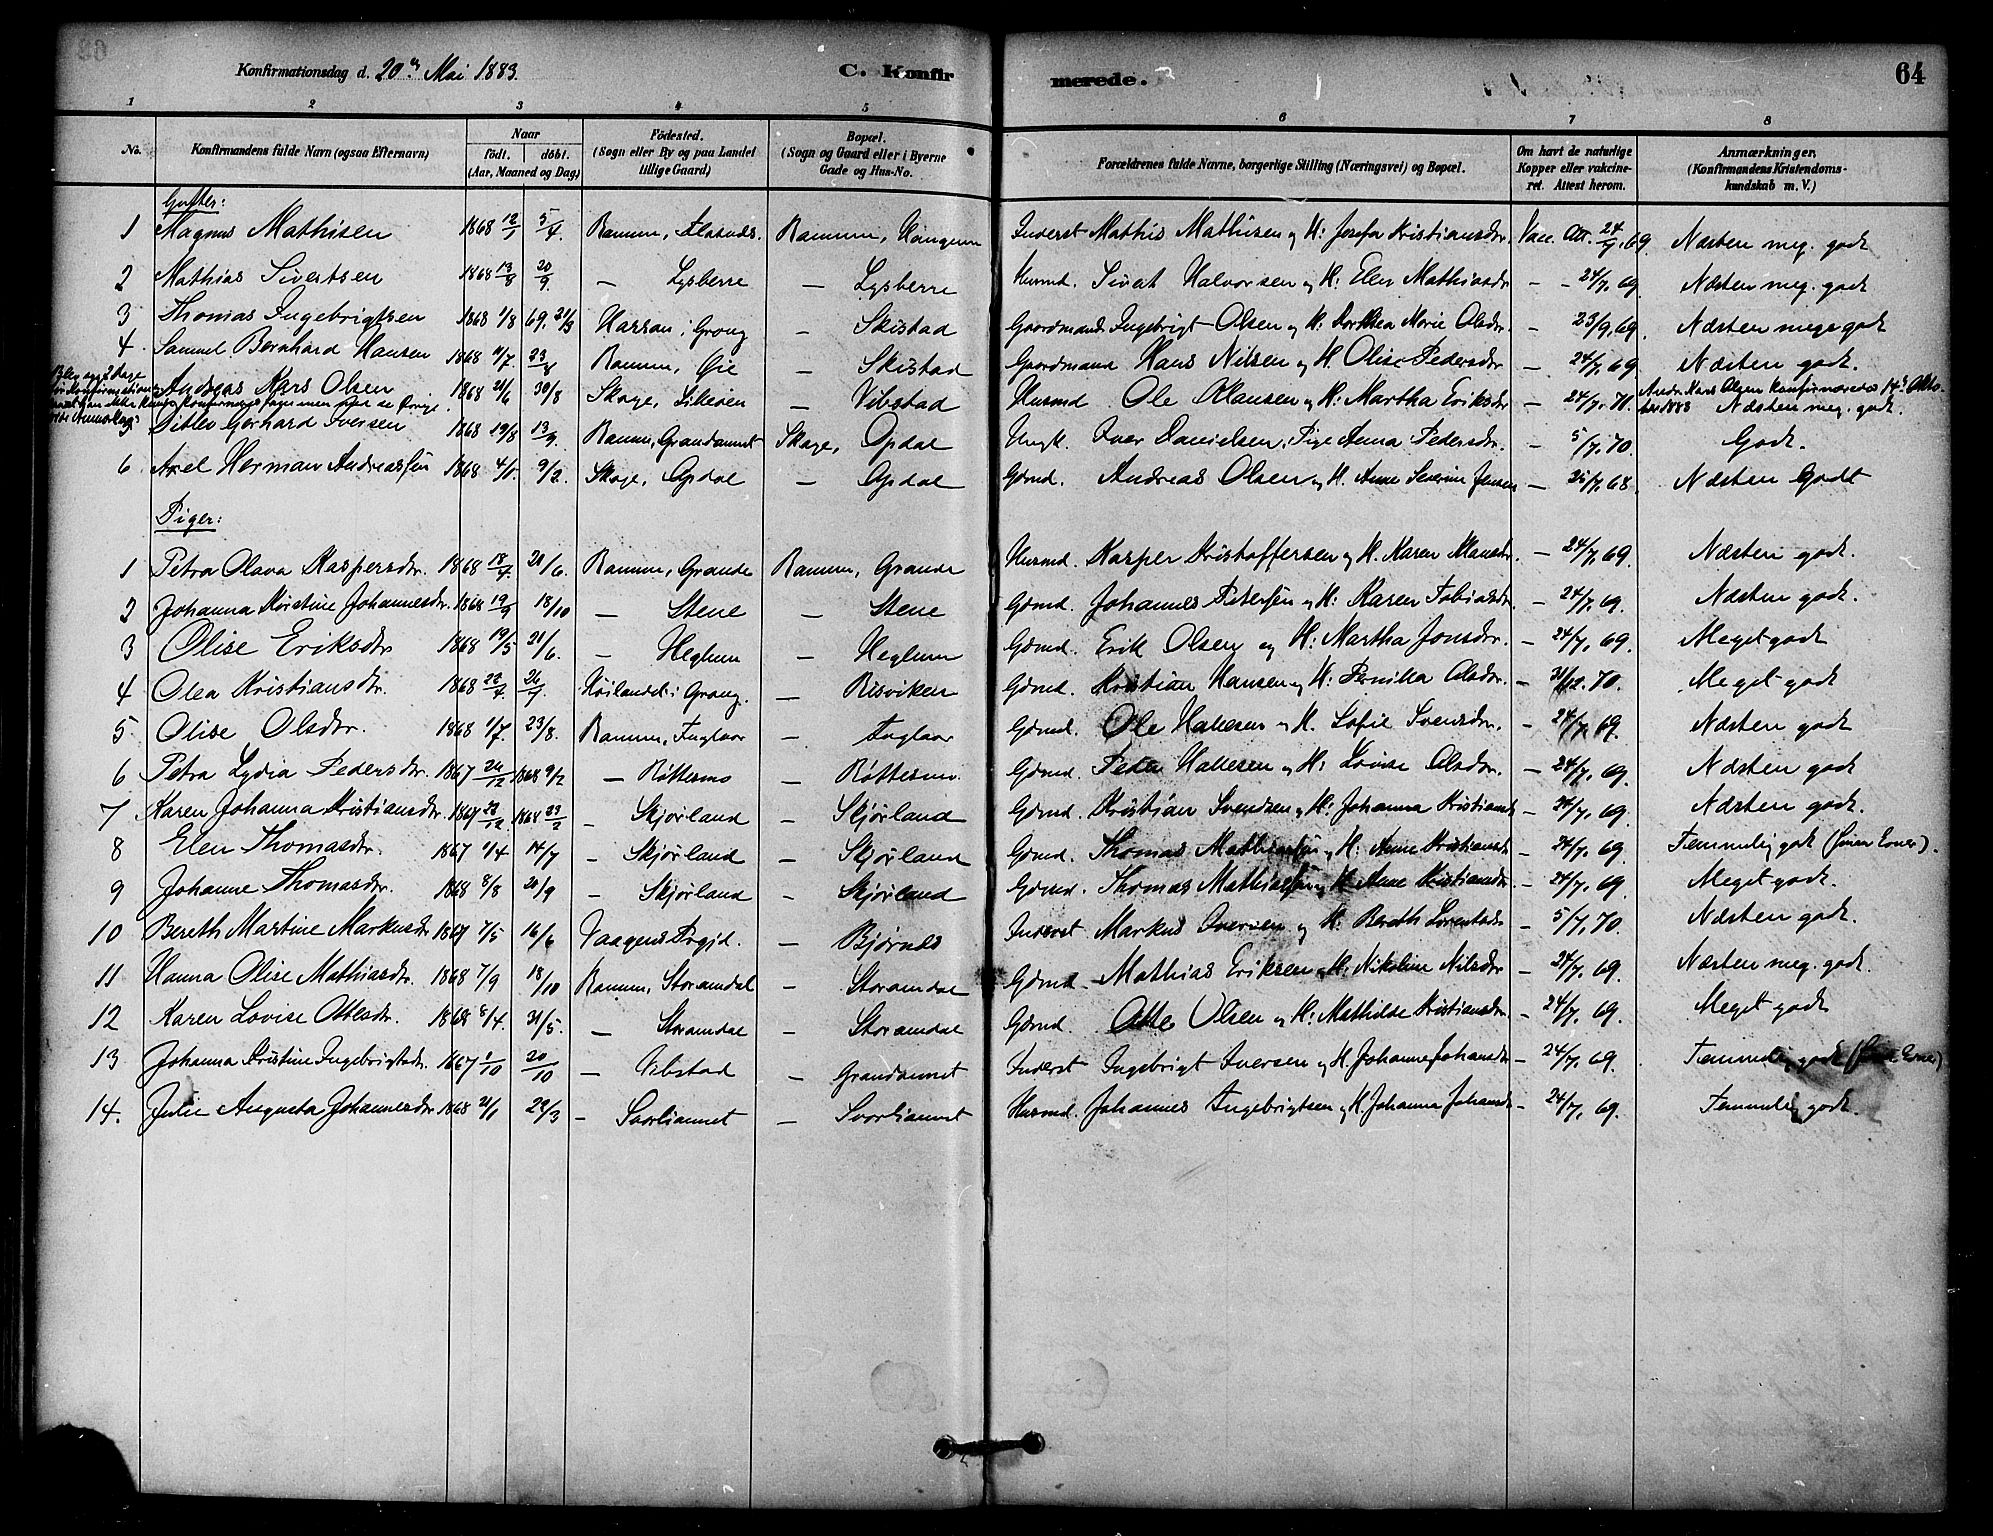 Konfirmationsdag d. 20de Mai 1883. C. Konfirmerede. 64
1 2 3 4 5 6 7 8
No. Konfirmandens fulde Navn (ogsaa Efternavn) Naar født. døbt. (Aar, Maaned og Dag) Fødested. (Sogn eller By og paa Landet tillige Gaard) Bopæl. (Sogn og Gaard eller i Byerne Gade og Hus-No. Forældrenes fulde Navne, borgerlige Stilling (Næringsvei) og Bopæl. Om havt de naturlige Kopper eller vaccineret. Attest herom. Anmærkninger, (Konfirmandens Kristendomskundskab m. V.)
Gutter:
1 Magnus Mathisen 1868 12/1 5/4 Ranum, Ranum, Inderst Mathis Mathisen og H: Josefa Kristiansdr. Vacc. Att. 24/7 69 Næsten meg. godt
2 Mathias Sivertsen 1868 13/8 20/9 – Lysberre – Lysberre Husmd. Sivert Halvorsen og H: Elen Mathiasdr – - 24/7 69 Næsten meg. godt
3 Thomas Ingebrigtsen 1868 1/8 69. 21/3 i Grong – Skistad Gaardmand Ingebrigt Olsen og H: Dorthea Marie Olsdr. – 23/9 69. Næsten meget godt
4. Samuel Bernhard Hansen 1868 11/7. 23/8 Ranum, Øie – Skistad Gaardmand Hans Nilsen og H. Olise Pedersdr – 24/7 69 Næsten godt.
Andreas Kars Olsen 1868 21/6 30/8 Skage, – Vibstad Husmd Ole Hansen og H: Martha Eriksdr – 24/7. 70. Næsten meg. godt.
5 Ditlev Gerhard Iversen 1868 19/8 13/9. Ranum, Grandaunet Skage, Opdal Ungk. Iver Danielsen, Pige Anna Pedersdr. – 5/7. 70. Godt.
6. Axel Herman Andreassen 1868 4/1. 9/2. Skage, Opdal – Opdal Gdmd. Andreas Olsen og H. Anne Severine Jensdr – 25/7. 68. Næsten Godt
Piger:
1 Petra Olava Kaspersdr. 1868 18/4. 21/6. Ranum, Grande Ranum, Grande Husmd. Kasper Kristoffersen og H. Karen Hansdr. – 24/7. 69. Næsten godt.
2 Johanna Kirstine Johannesdr. 1868 19/9 18/10 – Stene – Stene Gdmd. Johannes Petersen og H: Karen Tobiasdr. – 24/7. 69. Næsten godt.
3 Olise Eriksdr 1868 19/5 21/6. – Heglum – Heglum Gdmd. Erik Olsen og H: Martha Jonsdr. – 24/7. 69. Meget godt
4 Olea Kristiansdr. 1868 22/7. 26/7. Høilandet i Grong. – Risviken Gdmd. Kristian Hansen og H: Pernilla Olsdr. – 31/12. 70. Meget godt
5 Olise Olsdr. 1868 1/7. 23/8. Ranum, Fuglaar – Fuglaar Gdmd. Ole Hallesen og H. Sofie Svensdr. – 24/7. 69. Næsten godt
6 Petra Lydia Pedersdr. 1867 26/12 1868 9/2 – Røttesmo – Røttesmo. Gdmd. Peder Hallesen og H: Lovise Olsdr. – 24/7. 69. Næsten godt
7 Karen Johanna Kristiansdr. 1867 22/12 1868 23/2 – Skjørland – Skjørland Gdmd. Kristian Svendsen og H: Johanna Kristiansdr – 24/7. 69. Næsten godt.
8 Elen Thomasdr. 1867 1/4 14/7 – Skjørland – Skjørland Gdmd. Thomas Mathiassen og H: Anne Kristiansdr – 24/7. 69 Temmelig godt
9 Johanne Thomasdr. 1868 8/8 20/9 – Skjørland – Skjørland Gdmd. Thomas Mathiassen og H. Anne Kristiansdr – 24/7. 69. Meget godt.
10 Bereth Martine Markusdr 1867 7/5 16/6 Vaagens Prgjd. – Bjørnes Inderst Markus Iversen og H. Bereth – 5/7. 70 Næsten godt.
11 Hanna Olise Mathiasdr. 1868 7/9 18/10 Ranum, Storamdal – Storamdal Gdmd. Mathias Eriksen og H: Nikoline Nilsdr – 24/7. 69. Næsten meg. godt.
12 Karen Lovise Ottesdr. 1868 8/4. 31/5. – Storamdal – Storamdal Gdmd. Otte Olsen og H: Mathilde Kristiansdr. – 24/7. 69. Meget godt
13 Johanna Kristine Ingebrigtsdr. 1867 1/10 20/10 – Vibstad – Grandaunet Inderst Ingebrigt Iversen og H. Johanna Johansdr – 24/7. 69. Temmelig godt
14. Julie Augusta Johannesdr 1868 21/1 22/3 – Svorliaunet – Svorliaunet Husmd. Johannes Ingebrigtsen og H. Johanna Johansdr – 24/7. 69. Temmelig godt.